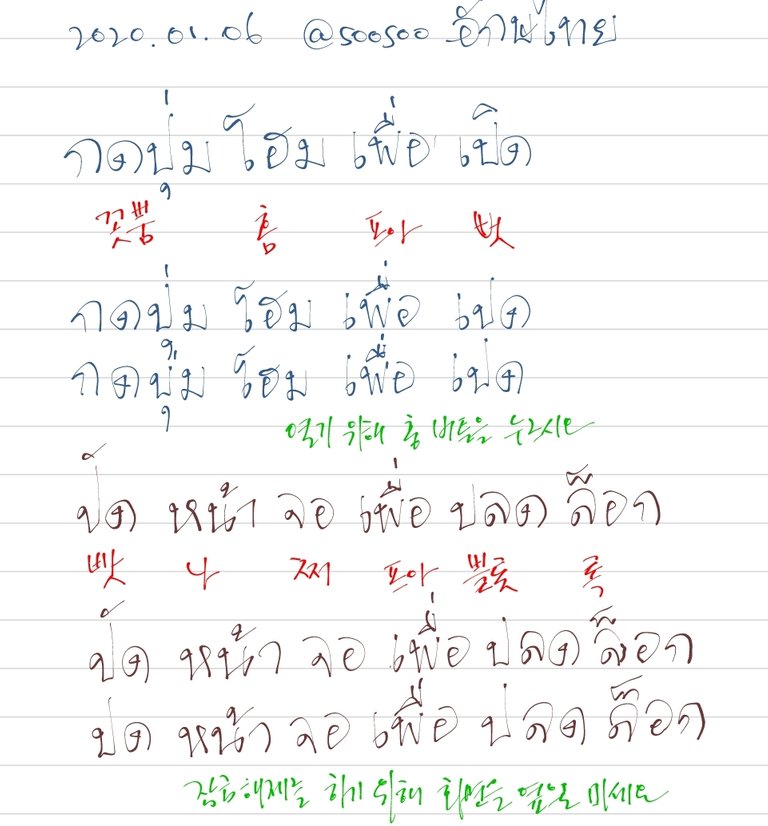 2020.01.06 @soosoo อักษไทย
กดปุ่ม โฮม เพื่อ เปิด
꼿뿜 홈 프아 뻣
กดปุ่ม โฮม เพื่อ เปด
กดปุ่ม โฮม เพื่อ เปด
열기 위해 홈 버튼을 누르시오
ปัด หน้า จอ เพื่อ ปลด ล็อก
빳 나 쩌 프아 쁠롯 록
ปัด หน้า จอ เพื่อ ปลด ล็อก
ปด หน้า จอ เพื่อ ปลด ล็อก
잠금해제를 하기 위해 화면을 미세요